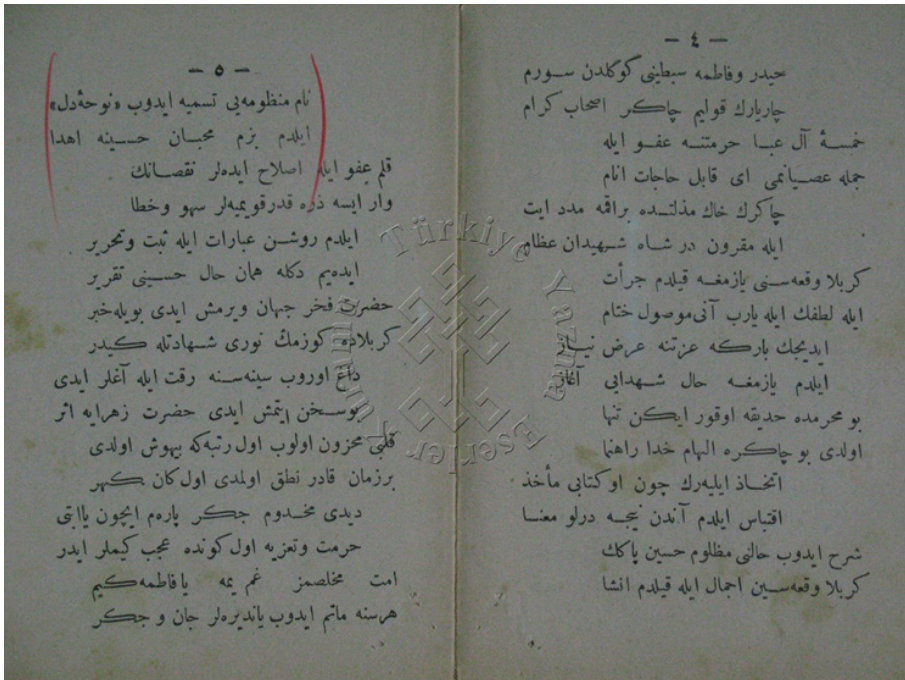 — ٤ —
حیدر و فاطمه سبطینی کوکلدن سورم
چاریارك قولیم چاکر اصحاب کرام
خمسهٔ آل عبا حرمتنه عفو ایله
جمله عصیانمی ای قابل حاجات انام
چاکرك خاك مذلتده براقمه مدد ایت
ایله مقرون در شاه شهیدان عظام
کربلا وقعه‌سنی یازمغه قیلدم جرأت
ایله لطفك ایله یارب آنی موصول ختام
ایدیجك بارکه عزتنه عرض نیاز
ایلدم یازمغه حال شهدایی آغاز
بو محرمده حدیقه اوقور ایکن تنها
اولدی بو چاکره الهام خدا راهنما
اتخاذ ایلیه‌رك چون او کتابی مأخذ
اقتباس ایلدم آندن نیجه درلو معنا
شرح ایدوب حالنی مظلوم حسین پاکك
کربلا وقعه‌سین اجمال ایله قیلدم انشا
— ٥ —
نام منظومه‌یی تسمیه ایدوب «نوحهٔ دل»
ایلدم بزم محبان حسینه اهدا
قلم عفو ایله اصلاح ایده‌لر نقصانك
وار ایسه ذره قدر قویمیه‌لر سهو وخطا
ایلدم روشن عبارات ایله ثبت وتحریر
ایده‌یم دکله همان حال حسینی تقریر
حضرت فخر جهان ویرمش ایدی بویله خبر
کربلاده کوزمك نوری شهادتله کیدر
داغ اوروب سینه‌سنه رقت ایله آغلر ایدی
بوسخن ایتمش ایدی حضرت زهرایه اثر
قلبی محزون اولوب اول رتبه‌که بیهوش اولدی
برزمان قادر نطق اولمدی اول کان کهر
دیدی مخدوم جکر پاره‌م ایچون یاابتی
حرمت وتعزیه اول کونده عجب کیملر ایدر
امت مخلصمز غم یمه یافاطمه کیم
هرسنه ماتم ایدوب یاندیره‌لر جان و جکر
Türkiye Yazma Eserler Kurumu